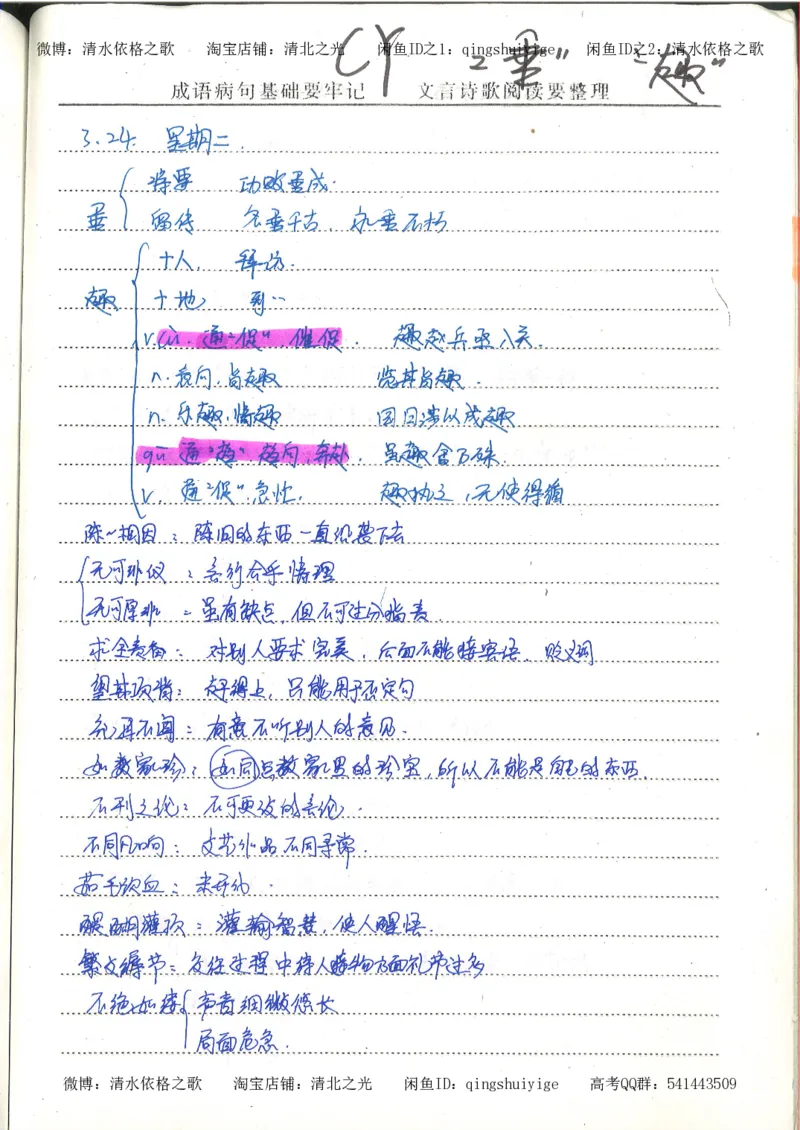 微博：清水依格之歌 淘宝店铺：清北之光 闲鱼ID之1：qingshuiyige 闲鱼ID之2：清水依格之歌
CY 之"垂" 之"趣"
成语病句基础要牢记 文言诗歌阅读要整理
3.24. 星期二.
垂 将要 功败垂成.
留传 名垂千古，永垂不朽
十人， 拜访.
趣 十地 到..
v.cù. 通"促"，催促. 趣赵兵亟入关.
n. 志向，尚趣 览其尚趣.
n. 乐趣，情趣 园日涉以成趣
qū 通"趋" 趋向，奔赴. 虽趣舍万殊.
v. 通"促" 急忙. 趣,无使得循
陈~相因：陈旧的东西一直沿袭下去
无可非议：言行合乎情理
无可厚非：虽有缺点，但不可过分指责
求全责备：对别人要求完美，后面不能接宾语，贬义词
望其项背：赶得上，只能用于否定句
充耳不闻：有意不听别人的意见.
如数家珍：如同点数家里的珍宝，所以不能是自己的东西.
不刊之论：不可更改的言论.
不同凡响：文艺作品不同寻常.
茹毛饮血：未开化.
醍醐灌顶：灌输智慧，使人醒悟.
繁文缛节：交往过程中待人接物方面礼节过多
不绝如缕 声音细微悠长
局面危急.
微博：清水依格之歌 淘宝店铺：清北之光 闲鱼ID：qingshuiyige 高考QQ群：541443509